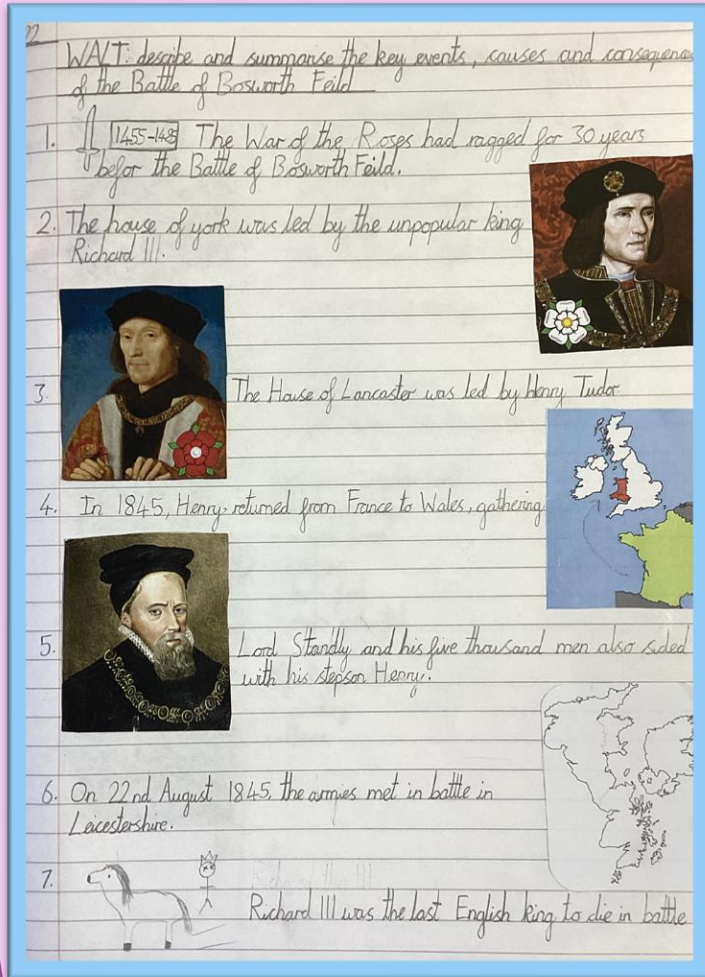 22
WALT: descibe and summarise the key events, causes and consequences
of the Battle of Bosworth Feild
1. 1455-1485 The War of the Roses had ragged for 30 years
befor the Battle of Bosworth Feild.
2. The house of york was led by the unpopular king
Richard III.
3. The House of Lancaster was led by Henry Tudor
4. In 1845, Henry returned from France to Wales, gathering
5. Lord Standly and his five thousand men also sided
with his stepson Henry.
6. On 22nd August 1845, the armies met in battle in
Leicestershire.
7.
Richard III was the last English king to die in battle